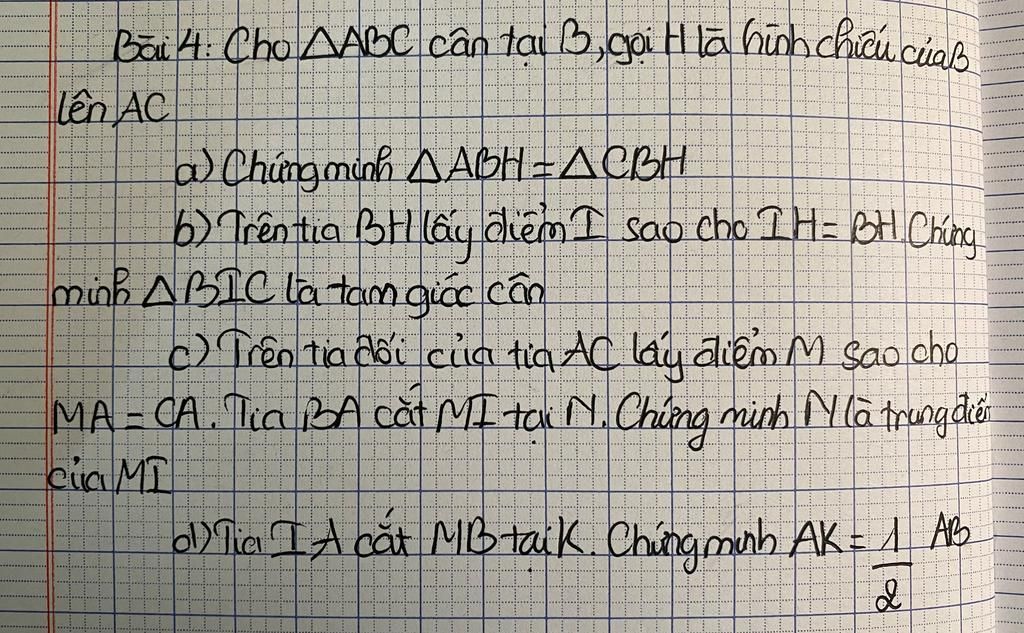 Bài 4: Cho △ABC cân tại B, gọi H là hình chiếu của B
lên AC
a) Chứng minh △ABH = △CBH
b) Trên tia BH lấy điểm I sao cho IH = BH. Chứng
minh △BIC là tam giác cân
c) Trên tia đối của tia AC lấy điểm M sao cho
MA = CA. Tia BA cắt MI tại N. Chứng minh N là trung điểm
của MI
d) Tia IA cắt MB tại K. Chứng minh AK = 1/2 AB